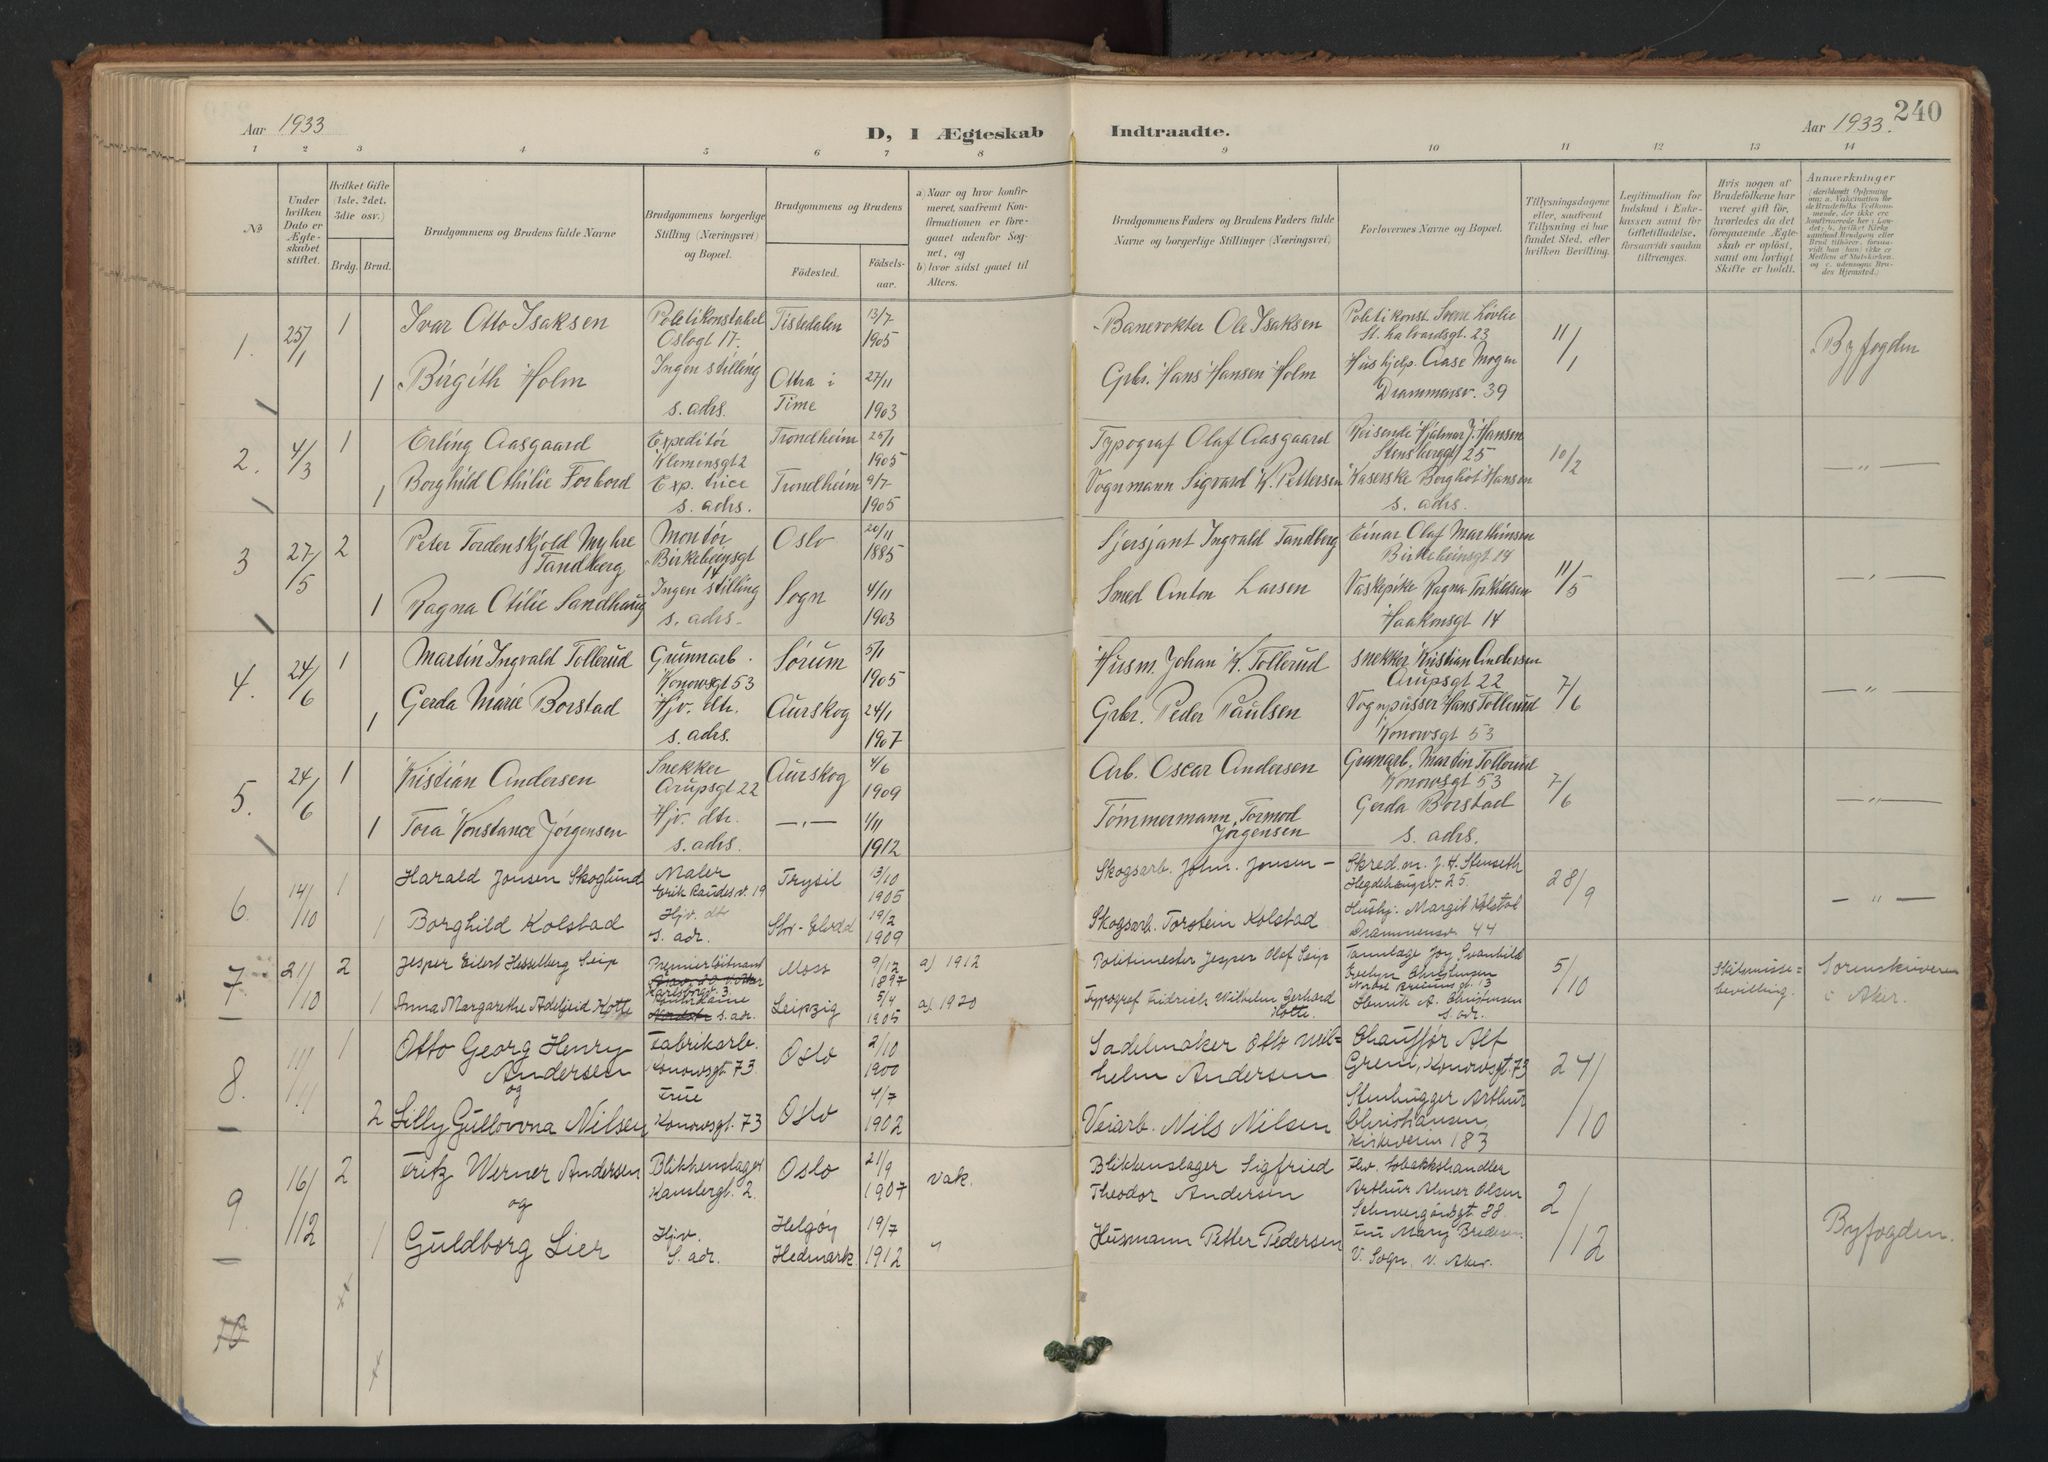 240
Aar 1933
D, I Ægteskab Indtraadte.
Aar 1933.
1 2 3 4 5 6 7 8 9 10 11 12 13 14
No
Under hvilken Dato er Ægteskabet stiftet.
Hvilket Gifte (1ste, 2det, 3die osv.)
Brdg. Brud.
Brudgommens og Brudens fulde Navne
Brudgommens borgerlige Stilling (Næringsvei) og Bopæl.
Brudgommens og Brudens
Fødested. Fødselsaar.
a) Naar og hvor konfirmeret, saafremt Konfirmationen er foregaaet udenfor Sognet, og
b) hvor sidst gaaet til Alters.
Brudgommens Faders og Brudens Faders fulde Navne og borgerlige Stillinger (Næringsvei)
Forlovernes Navne og Bopæl.
Tillysningsdagene eller, saafremt Tillysning ei har fundet Sted, efter hvilken Bevilling.
Legitimation for Indskud i Enkekassen samt for Giftetilladelse, forsaavidt saadan tiltrænges.
Hvis nogen af Brudefolkene har været gift før, hvorledes da det foregaaende Ægteskab er opløst, samt om lovligt Skifte er holdt.
Anmærkninger
1. 25/1 1 Ivar Otto Isaksen Politikonstabel Oslogt 17. Tistedalen 13/7 1905
Banevokter Ole Isaksen Politikonst. Sverre Løvlie St. halvardsgt. 23 11/1 Byfogden
1 Birgith Holm Ingen stilling s. adrs. Ottra i Time 27/11 1903
Grbr. Hans Hansen Holm Hushjelp. Aase Mogen Drammensv. 39
2. 4/3 1 Erling Aasgaard Expeditør Klemensgt 2 Trondheim 25/1 1905
Typograf Olaf Aasgaard Reisende Hjalmar J. Hansen Stensberggt 25 10/2 — " —
1 Borghild Othilie Forbord Exp. trice s. adrs. Trondheim 9/7 1905
Vognmann Sigvard K. Pettersen Kaserske Borghöt Hansen s. adrs.
3 27/5 2 Peter Tordenskjold Myhre Tandberg Montör Birkebeinsgt 14 Oslo 20/11 1885
Sjersjant Ingvald Tandberg Einar Olaf Marthinsen Birkebeinsgt 14 11/5 — " —
1 Ragna Otilie Sandhaug Ingen stilling s. adrs. Sogn 4/11 1903
Smed Anton Larsen Vaskepike Ragna Torkildsen Haakonsgt 14
4. 24/6 1 Martin Ingvald Tollerud Gummarb. Konowsgt 53 Sørum 5/1 1905
Husm. Johan K. Tollerud snekker Kristian Andersen Arupsgt 22 7/6 — " —
1 Gerda Marie Borstad Hjv. dtr. s. adrs. Aurskog 24/1 1907
Grbr. Peder Paulsen Vognpusser Hans Tollerud Konowsgt 53
5. 24/6 1 Kristian Andersen Snekker Arupsgt 22 Aurskog 4/6 1909
Arb. Oscar Andersen Gumarb. Martin Tollerud Konowsgt 53 7/6 — " —
1 Tora Konstance Jørgensen Hjv. dtr. s. adrs. — " — 4/11 1912
Tømmermann Tormod Jørgensen Gerda Borstad s. adrs.
6 14/10 1 Harald Jonsen Skoglund Maler Erik Raudes v. 19 Trysil 13/10 1905
Skogsarb. John. Jonsen — Skred.m. J. H. Stenseth Hegdehaugsv. 25. 28/9 — " —
1 Borghild Kolstad Hjv. dt s. adr. Stor-Elvdal 19/2 1909
Skogsarb. Torstein Kolstad Hushj. Margit Kolstad Drammensv 44
7 21/10 2 Jesper Eilert Hesselberg Seip Premierløitnant Karlsborgv. 3. Moss 9/12 1897 a) 1912
Politimester Jesper Olaf Seip Tannlæge Joy Svanhild Evelyn Christensen 5/10 Skilsmissebevilling. Sorenskriveren i Aker.
1 Anna Margarethe Adelheid Kotte s. adr. Leipzig 5/4 1905 a) 1920
Typograf Fridrich Wilhelm Gerhard Kotte. Henrik A. Christensen s. adr.
8. 11/11 1 Otto Georg Henry Andersen Fabrikarb. Konowsgt. 73 Oslo 2/10 1900
Sadelmaker Otto Wilhelm Andersen Chauffør Alf Greni, Konowsgt. 73 24/10
og
2 Lilly Gullovna Nilsen Frue Konowsgt. 73 Oslo 4/7 1902
Veiarb. Nils Nilsen Stenhugger Arthur Christiansen, Kirkeveien 183
9. 16/12 2 Fritz Werner Andersen Blikkenslager Kanslergt. 2. Oslo 21/9 1907 vak.
Blikkenslager Sigfried Theodor Andersen Arthur Almer Olsen 2/12 Byfogden.
og
1 Guldborg Lier Hjv. S. adr. Helgøy Hedmark 19/7 1912 "
Husmann Petter Pedersen Fru Mary Bredesen V. Sogn, V. Aker.
10